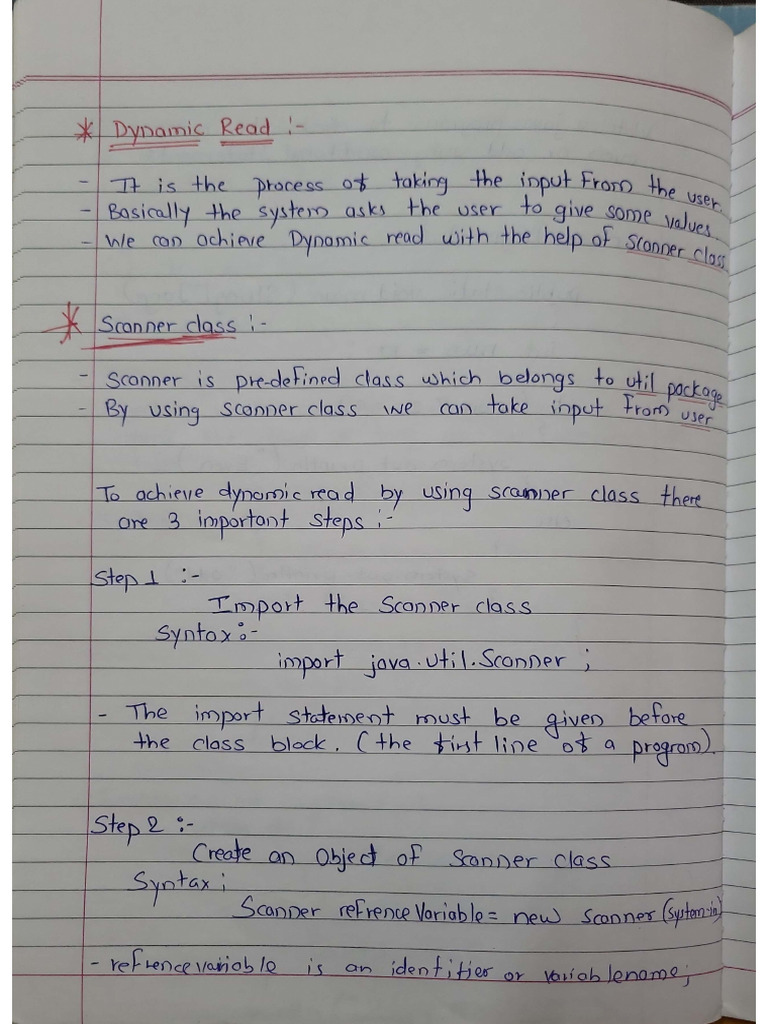 * Dynamic Read :-
- It is the process of taking the input From the user.
- Basically the system asks the user to give some values.
- We can achieve Dynamic read with the help of Scanner class
* Scanner class :-
- Scanner is pre-defined class which belongs to util package
- By using scanner class we can take input from user
To achieve dynamic read by using scanner class there
are 3 important steps :-
Step 1 :-
Import the Scanner class
Syntax :-
import java.util.Scanner ;
- The import statement must be given before
the class block. (the first line of a program).
Step 2 :-
Create an Object of Scanner class
Syntax ;
Scanner refrence Variable = new Scanner (System.in)
- refrence variable is an identifier or variablename;